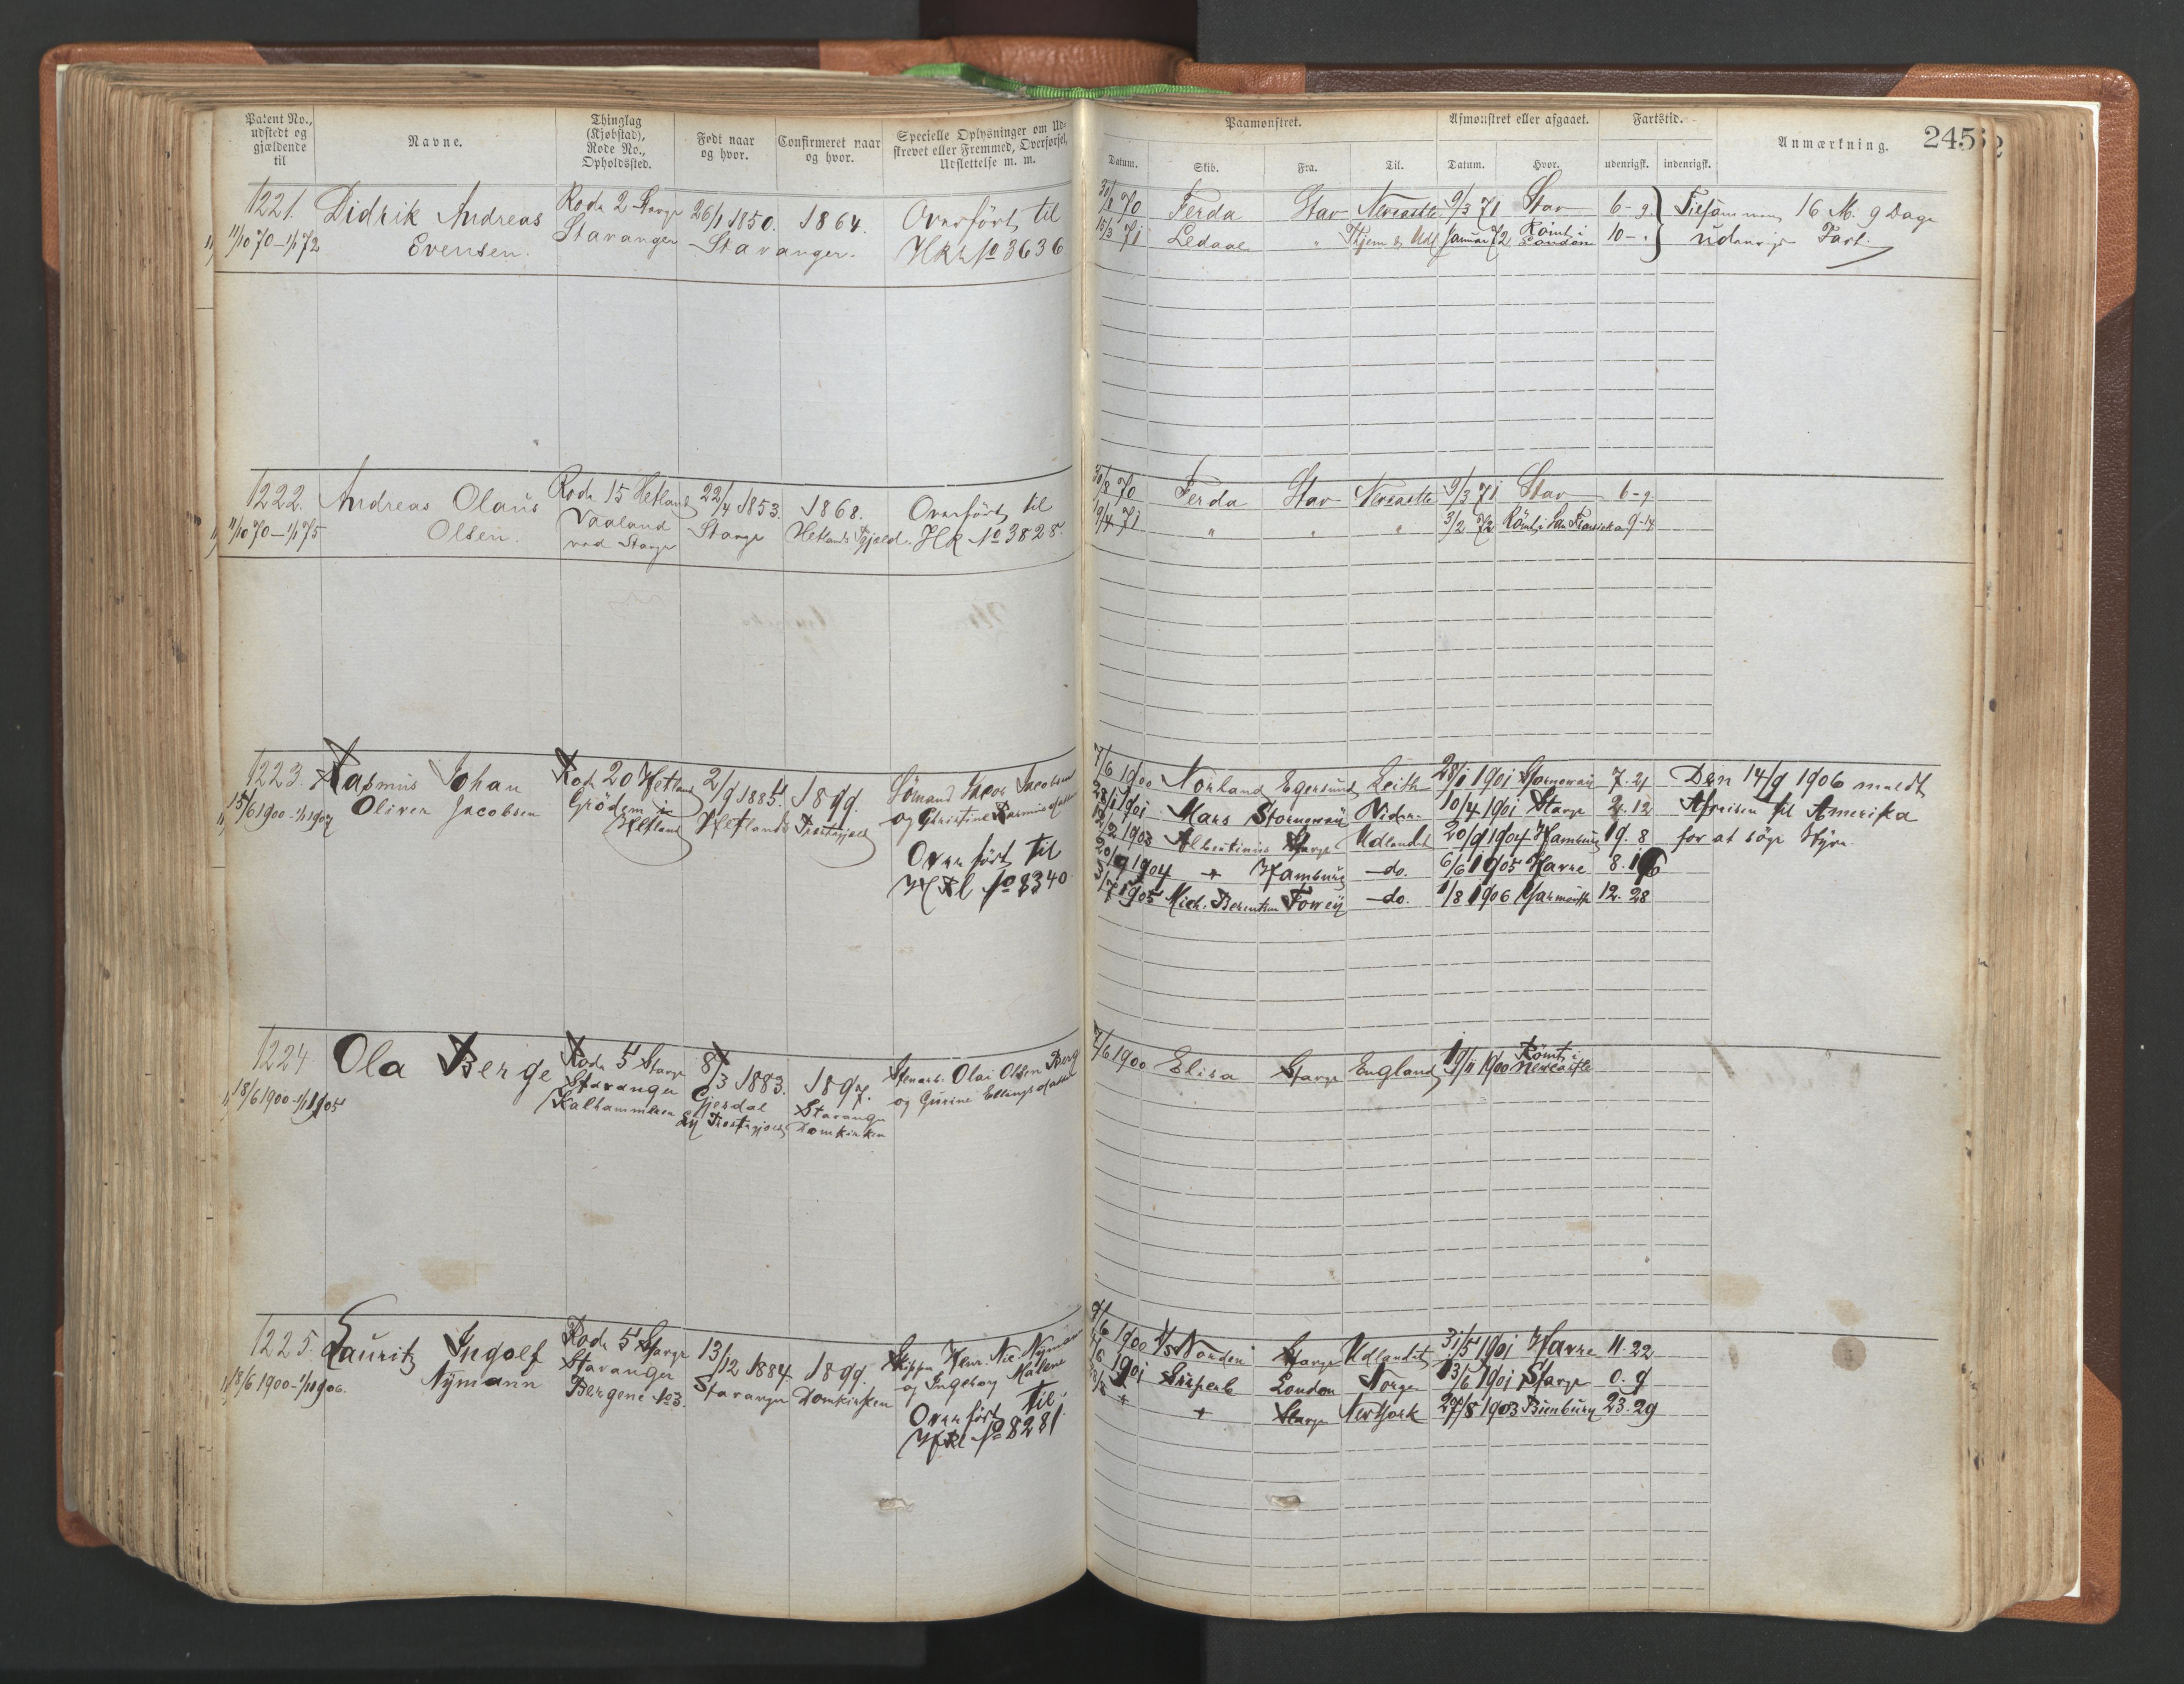 Patent No., udstedt og gjældende til
Navne.
Thinglag (Kjøbstad), Rode No., Opholdssted.
Født naar og hvor.
Confirmeret naar og hvor.
Specielle Oplysninger om Udstrevet eller Fremmed, Overførsel, Udslettelse m. m.
Paamønstret.
Afmønstret eller afgaaet.
Fartstid.
Anmærkning.
245
Datum.
Skib.
Fra.
Til.
Datum.
Hvor.
udenrigsk.
indenrigsk.
1221. Didrik Andreas
11/10 70 – 1/1 72 Evensen.
Rode 2 Stavgr
Stavanger
26/1 1850.
Stavanger.
1864.
Overført til
No 3636
30/8 70 Ferda Stav Newcastle 9/3 71 Stav 6 - 9
15/3 71 Ledaal " Januar 72 Rømt i London 10 -
Tilsammen 16 M. 9 Dage
udenrigs Fart.
1222. Andreas Olaus
11/10 70 – 1/1 75 Olsen.
Rode 15 Hetland
Vaaland
ved Stavgr
22/4 1853.
Stavgr
1868.
Hetlands
Overført til
HR No 3828.
30/8 70 Ferda Stav Newcastle 9/3 71 Stav 6 - 9.
19/4 71 " " " 3/2 72 Rømt i San Francisko 9-14
1223. Rasmus Johan
15/6 1900 - 1/1 1907 Oliver Jacobsen
Rode 20 Hetland
Grödem i
Hetland
2/9 1885.
Hetlands
1899.
Præstegjæld
Sömand Jacob Jacobsen
og Christine Rasmusdatter
Overført til
No 8340
7/6 1900 Norland Egersund Leith 28/1 1901 Stornoway 7. 21
28/1 1901 Mars Stornoway 10/4 1901 Stavgr 2. 12
12/2 1903 Albertinius Stavgr Udlandet 20/9 1904 Hamburg 19. 8
20/9 1904 + Hamburg - do. 6/6 1905 Havre 8. 16
3/7 1905 Mich. Berentsen Fowey - do. 1/8 1906 Yarmouth 12. 28
Den 14/9 1906 meldt
Afreisen til Amerika
for at søge Hyre.
1224 Ola Berge
18/6 1900 - 1/1 1905
Rode 5 Stavgr
Stavanger
Kalhammeren
8/3 1883.
Gjesdal
Ly Præstegjæld
1897.
Stavanger
Domkirken
Stenarb. Olai Olsen Berg
og Gurine Ellingsdatter
7/6 1900 Elisa Stavgr England 19/11 1900 Rømt i Newcastle
1225. Lauritz Ingolf
18/6 1900 - 1/1 1906. Nymann
Rode 5 Stavgr
Stavanger
Bergene No 3.
13/12 1884.
Stavanger
1899.
Domkirken
Skipper Henr. Nic. Nyman
og Ingeborg Mallene
Overført til
No 8281
9/6 1900 Norden Stavgr Udlandet 31/5 1901 Havre 11. 22
1901 Superb London Norge 13/6 1901 Stavgr 0. 9
+ + Stavgr NewYork 27/8 1903 Bunbury 23. 29